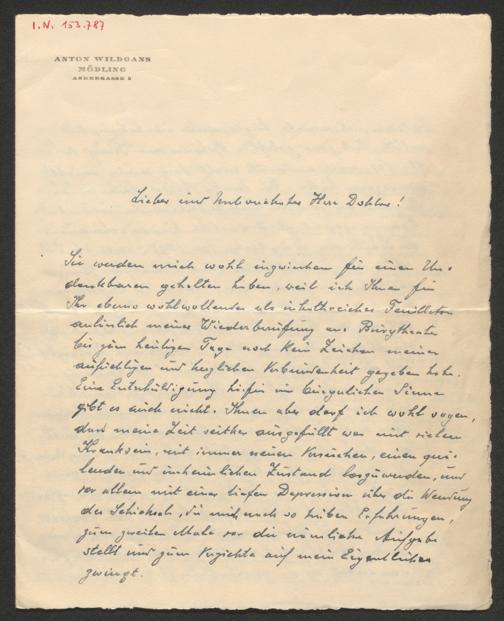 I.N. 153.787
ANTON WILDGANS
MÖDLING
ANDERGASSE 3
Lieber und Hochverehrter Herr Doktor!
Sie werden mich wohl inzwischen für einen Un-
dankbaren gehalten haben, weil ich Ihnen für
Ihr ebenso wohlwollendes als inhaltreiches Feuilleton
anläßlich meiner Wiederberufung ans Burgtheater
bis zum heutigen Tage noch kein Zeichen meiner
aufrichtigen und herzlichen Verbundenheit gegeben habe.
Eine Entschuldigung hiefür im bürgerlichen Sinne
gibt es auch nicht. Ihnen aber darf ich wohl sagen,
dass meine Zeit seither ausgefüllt war mit vielem
Kranksein, mit immer neuen Versuchen, einen quä-
lenden und unheimlichen Zustand loszuwerden, und
vor allem mit einer tiefen Depression über die Wendung
des Schicksals, die mich nach so trüben Erfahrungen,
zum zweiten Male vor die nämliche Aufgabe
stellt und zum Verzichte auf mein Eigentliches
zwingt.